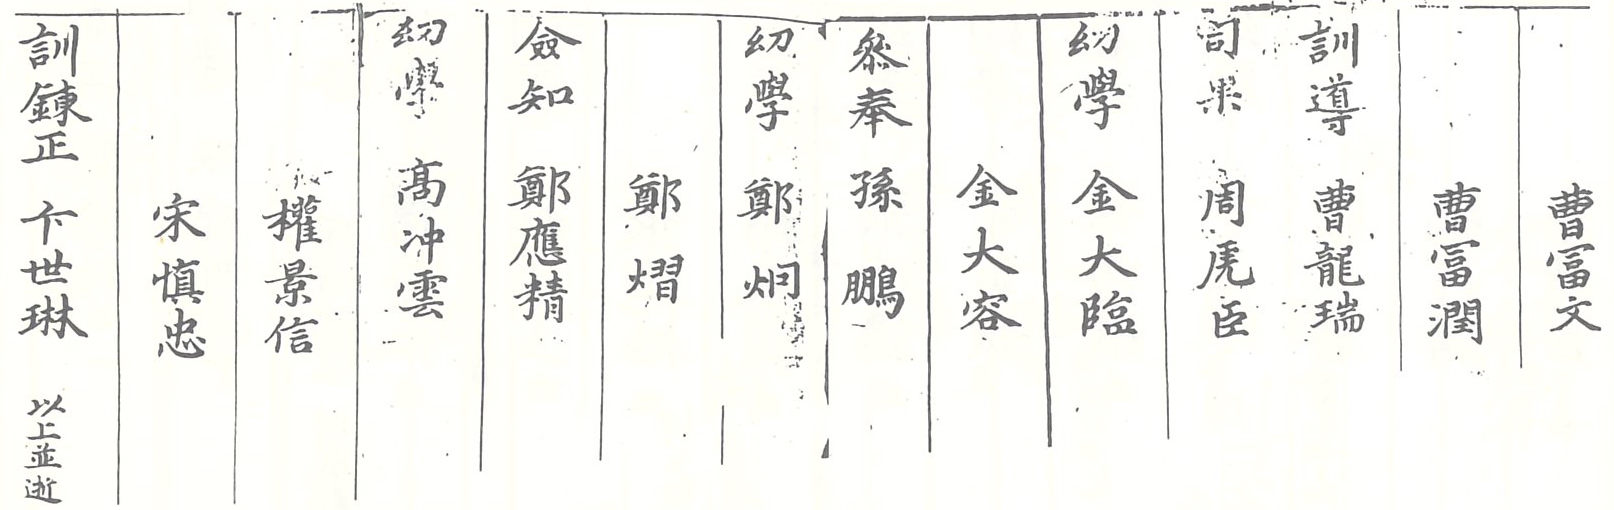 曹冨文
曹冨潤
訓導 曹龍瑞
司果 周虎臣
幼學 金大臨
金大容
叅奉 孫鵬
幼學 鄭炯
鄭熠
僉知 鄭應精
幼學 高冲雲
權景信
宋愼忠
訓鍊正 卞世琳 以上並逝